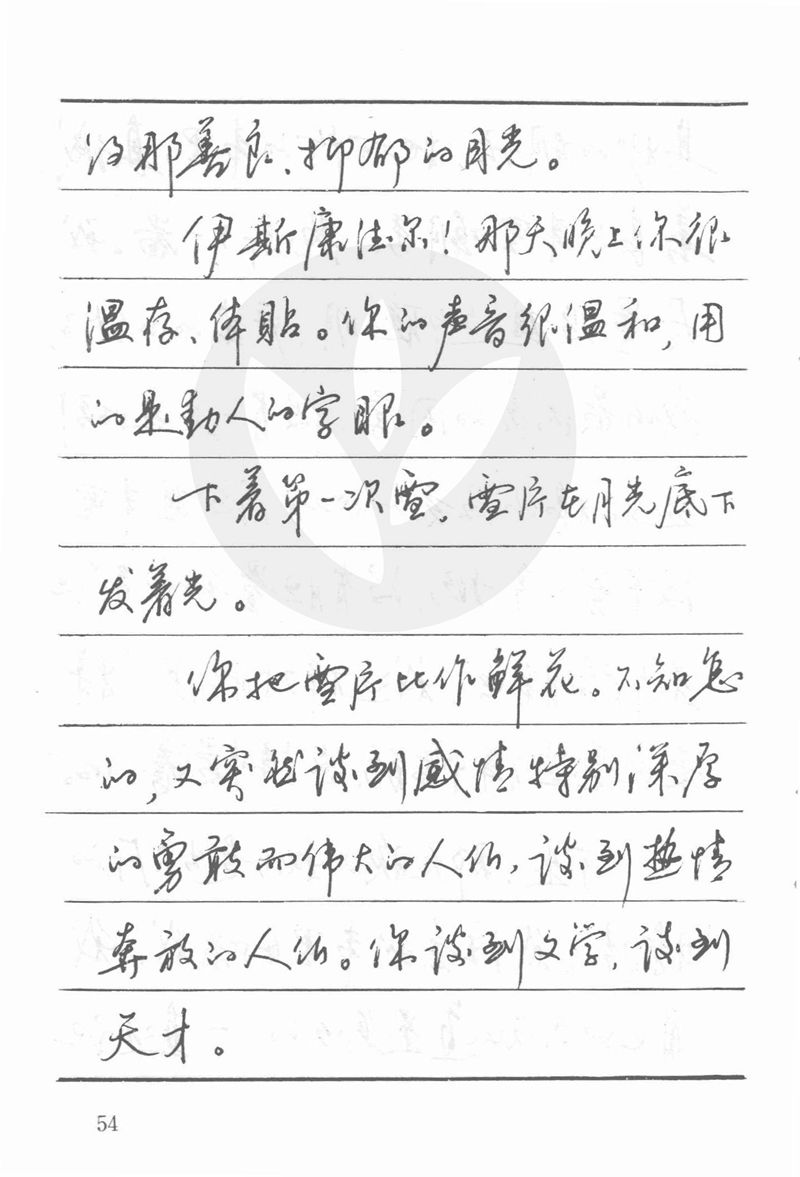 的那善良、抑郁的目光。
伊斯康德尔！那天晚上你很
温存、体貼。你的声音很温和，用
的是動人的字眼。
下着第一次雪。雪片在月光底下
发着光。
你把雪片比作鲜花。不知怎
的，又突然谈到感情特别深厚
的勇敢而伟大的人们，谈到热情
奔放的人们。你谈到文学，谈到
天才。
54